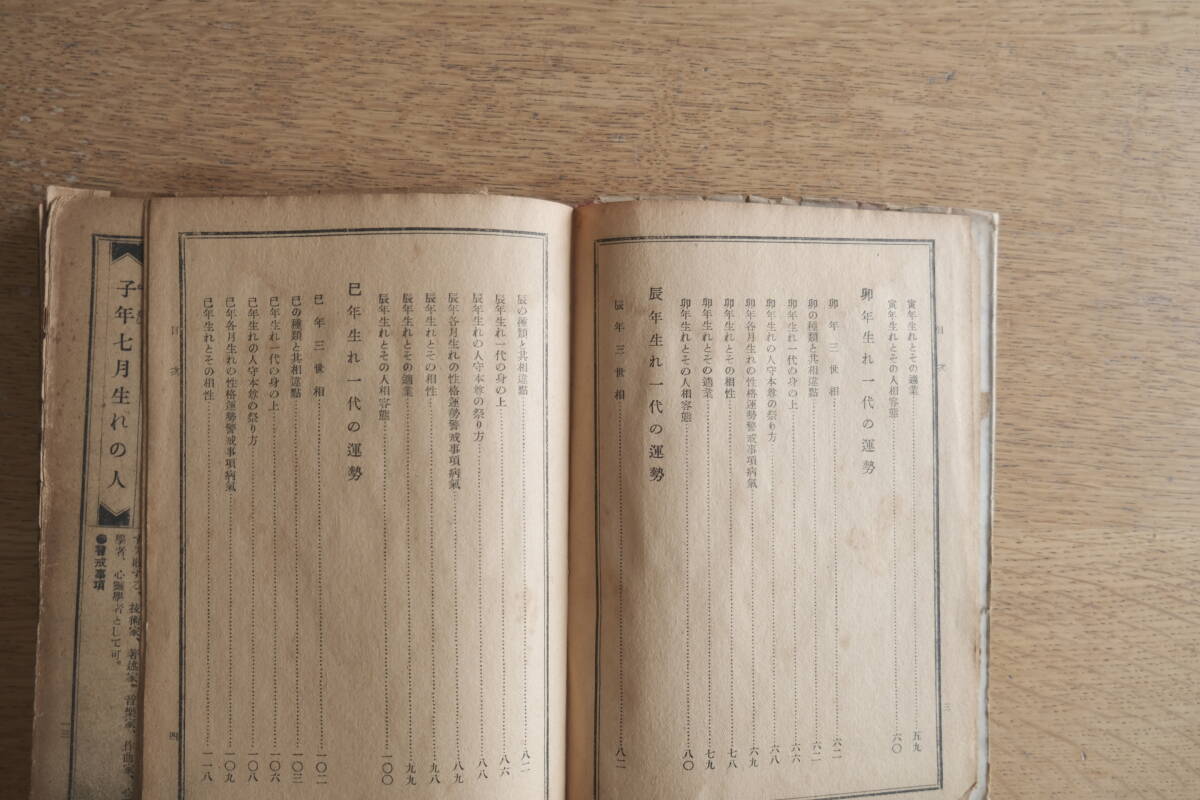 目次
寅年生れとその適業……五九
寅年生れとその人相容態……六〇
卯年生れ一代の運勢
卯年三世相……六二
卯の種類と共相違點……六二
卯年生れ一代の身の上……六六
卯年生れの人守本尊の祭り方……六八
卯年各月生れの性格運勢警戒事項病氣……六九
卯年生れとその相性……七八
卯年生れとその適業……七九
卯年生れとその人相容態……八〇
辰年生れ一代の運勢
辰年三世相……八二
三
辰の種類と共相違點……八二
辰年生れ一代の身の上……八六
辰年生れの人守本尊の祭り方……八八
辰年各月生れの性格運勢警戒事項病氣……八九
辰年生れとその相性……九八
辰年生れとその適業……九九
辰年生れとその人相容態……一〇〇
巳年生れ一代の運勢
巳年三世相……一〇二
巳の種類と共相違點……一〇三
巳年生れ一代の身の上……一〇六
巳年生れの人守本尊の祭り方……一〇八
巳年各月生れの性格運勢警戒事項病氣……一〇九
巳年生れとその相性……一一八
目次
四
子年七月生れの人
技術家、著述家、音樂家、作曲家、
學者、心靈學者として可。
●警戒事項